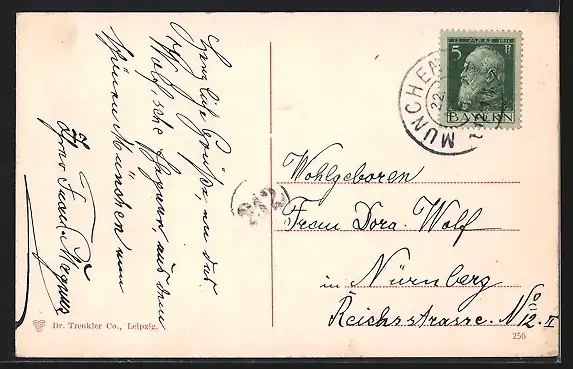 Herzliche Grüße an das
Wolf'sche Ehepaar, aus dem
schönen München von
Ihrer Frau Magnus
MÜNCHEN
22.
5 Pf
12 MÄRZ 1911
BAYERN
212
Wohlgeboren
Frau Dora Wolf
in Nürnberg
Reichsstrasse No 12. II
Dr. Trenkler Co., Leipzig.
250